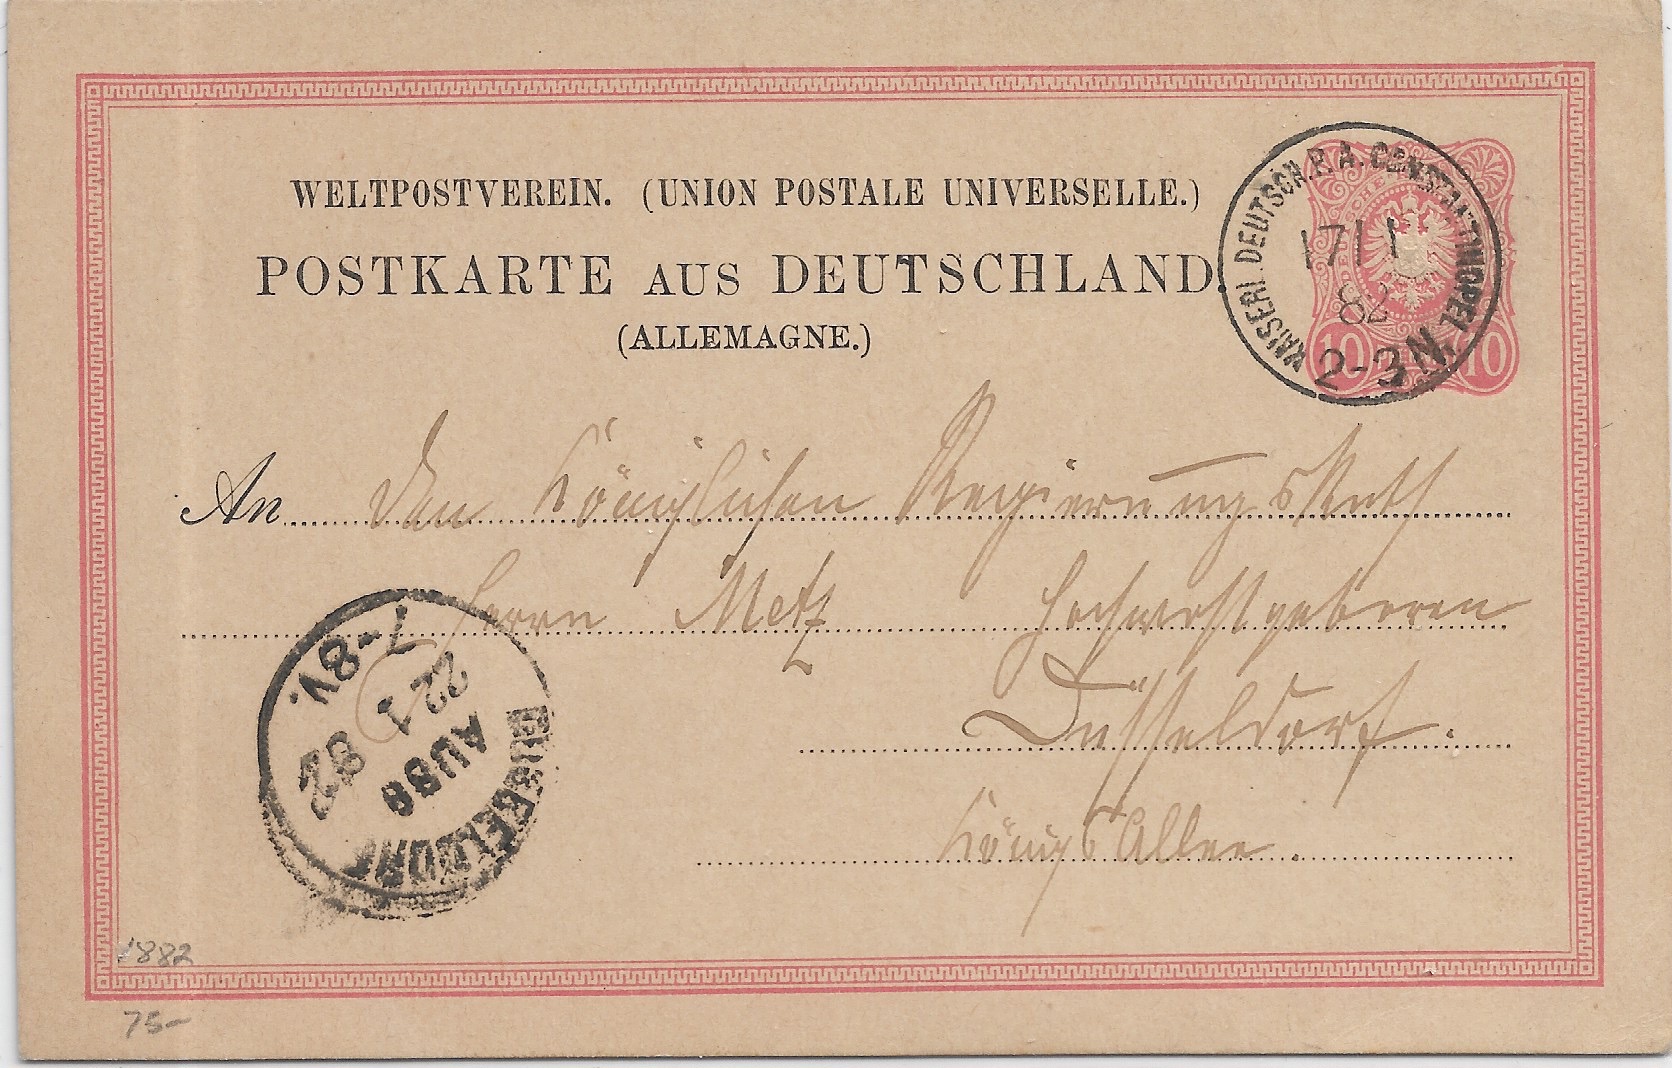 WELTPOSTVEREIN. (UNION POSTALE UNIVERSELLE.)
POSTKARTE AUS DEUTSCHLAND.
(ALLEMAGNE.)
KAISERL. DEUTSCH. P. A. CONSTANTINOPEL
17 1
82
2-3 N.
10 10
An den Königlichen Regierungs Rath
Herrn Metz Hochwohlgeboren
Düsseldorf.
Königs Allee.
DUSSELDORF
AUSG
22 1
82
7-8V.
1882
75-